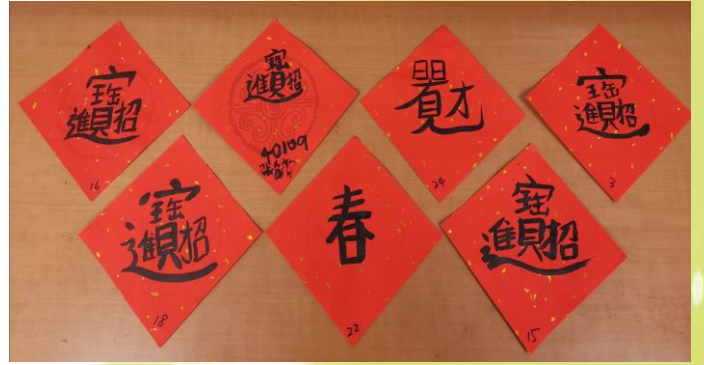 招財進寶
16
招財進寶
40109
日日見財
24
招財進寶
3
招財進寶
18
春
22
招財進寶
15